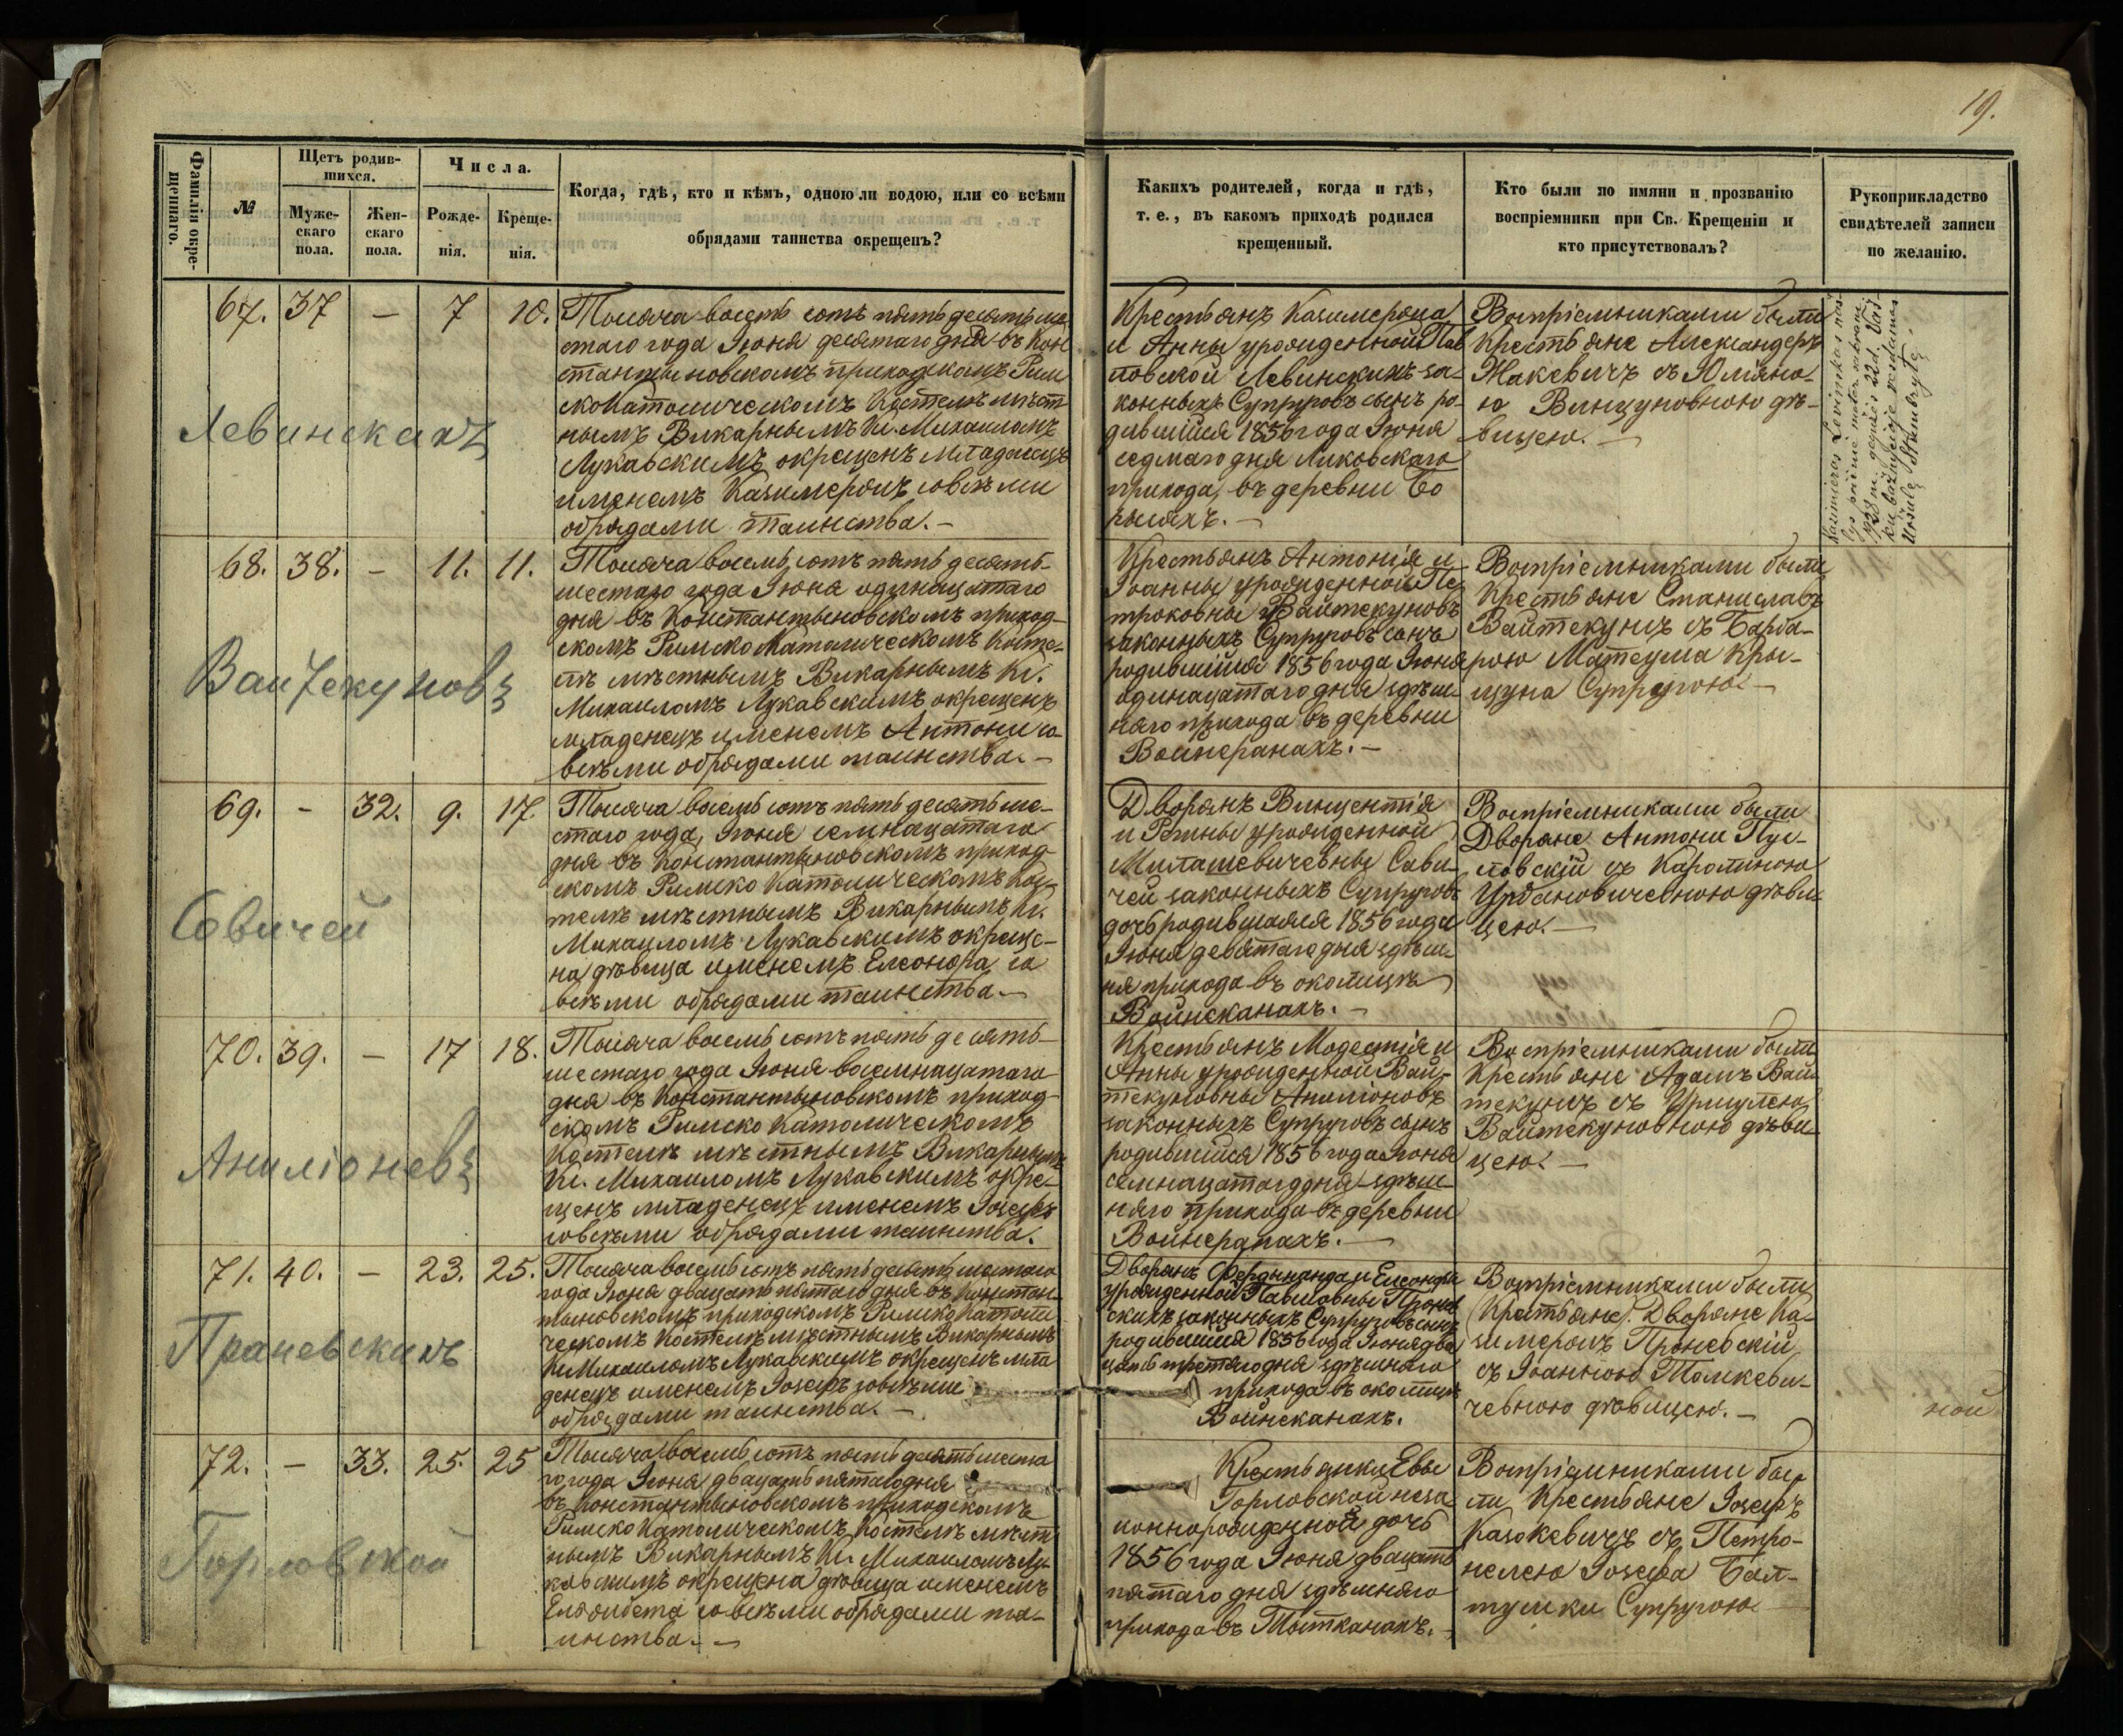 19.
Фамиліи окре-
щеннаго.
№
Щетъ родив-
шихся.
Муже-
скаго
пола.
Жен-
скаго
пола.
Числа.
Рожде-
нія.
Креще-
нія.
Когда, гдѣ, кто и кѣмъ, одною ли водою, или со всѣми
обрядами таинства окрещенъ?
Какихъ родителей, когда и гдѣ,
т. е., въ какомъ приходѣ родился
крещенный.
Кто были по имяни и прозванію
воспріемники при Св. Крещеніи и
кто присутствовалъ?
Рукоприкладство
свидѣтелей записи
по желанію.
Левинскихъ
67. 37 – 7 10.
Тысяча восемь сотъ пять десять ше
стаго года Іюня десятаго дня въ Кон
стантыновскомъ приходскомъ Рим
скоКатолическомъ Костелѣ мѣст
нымъ Викарнымъ Кс. Михаиломъ
Лукавскимъ окрещенъ младенецъ
именемъ Казимеромъ совсѣми
обрядами таинства. –
Крестьянъ Казимерона
и Анны урожденной Пав
ловской Левинскихъ за-
конныхъ Супруговъ сынъ ро-
дившійся 1856 года Іюня
седмаго дня Лиховскаго
прихода, въ деревни
Воспріемниками были
Крестьяне Александеръ
Жакевичъ съ Юліяно-
ю Винцуновною дѣ-
вицею. –
Kazimieras Levinskas
Uršulę Stembrytę.
Вайтекуновъ
68. 38. – 11. 11.
Тысяча восемь сотъ пять десять-
шестаго года Іюня одинацатаго
дня въ Константыновскомъ приход-
скомъ РимскоКатолическомъ Косте-
лѣ мѣстнымъ Викарнымъ Кс.
Михаиломъ Лукавскимъ окрещенъ
младенецъ именемъ Антони со
всѣми обрядами таинства. –
Крестьянъ Антонія и
Іоанны урожденной Пе
троковны Вайтекуновъ
законныхъ Супруговъ сынъ
родившійся 1856 года Іюня
одинацатаго дня здѣш-
няго прихода въ деревни
Войнеранахъ. –
Воспріемниками были
Крестьяне Станиславъ
Вайтекунъ съ Барба-
рою Матеуша Кры-
щуна Супругою. –
Савичей
69. - 32. 9. 17.
Тысяча восемь сотъ пять десять ше-
стаго года, Іюня семнацатаго
дня въ Константыновскомъ приход-
скомъ Римско Католическомъ Кос-
телѣ мѣстнымъ Викарнымъ Кс.
Михаиломъ Лукавскимъ окреще-
на дѣвица именемъ Елеонора со
всѣми обрядами таинства. –
Дворянъ Винцентія
и Регины урожденной
Милашевичевны Сави-
чей законныхъ Супруговъ
дочь родившаяся 1856 года
Іюня девятаго дня здѣш-
ня прихода въ околицѣ
Войнсканахъ. –
Воспріемниками были
Дворяне Антони Пус-
ловскій съ Каролиною
Урбановичевною дѣви-
цею. –
Аниліоневъ
70. 39. – 17 18.
Тысяча восемь сотъ пять десять-
шестаго года Іюня восемнацатаго
дня въ Константыновскомъ приход-
скомъ Римско Католическомъ
Костелѣ мѣстнымъ Викарнымъ
Кс. Михаиломъ Лукавскимъ окре-
щенъ младенецъ именемъ Іосефъ
совсѣми обрядами таинства.
Крестьянъ Модестія и
Анны урожденной Вай-
текуновны Аниліоновъ
законныхъ Супруговъ сынъ
родившійся 1856 года Іюня
семнацатаго дня здѣш-
няго прихода въ деревни
Войнеранахъ. –
Воспріемниками были
Крестьяне Адамъ Вай-
текунъ съ Уршулею
Вайтекуновною дѣви-
цею. –
Праневскихъ
71. 40. – 23. 25.
Тысяча восемь сотъ пять десять шестаго
года Іюня двацать пятаго дня въ Констан-
тыновскомъ приходскомъ Римско Католи
ческомъ Костелѣ мѣстнымъ Викарнымъ
Кс Михаиломъ Лукавскимъ окрещенъ мла
денецъ именемъ Іосефъ совсѣми
обрядами таинства. –
Дворянъ Фердынанда и Елеоноры
урожденной Павиловны Пронев
скихъ законныхъ Супруговъ сынъ
родившійся 1856 года Іюня два
цать третяго дня здѣшняго
прихода въ околицѣ
Войнсканахъ.
Воспріемниками были
(Крестьяне). Дворяне Ка-
зимеромъ Проневскій
съ Іоанною Томкеви-
чевною дѣвицею. –
Горловской
72. – 33. 25. 25
Тысяча восемь сотъ пять десять шеста
го года Іюня двацать пятаго дня
въ Константыновскомъ приходскомъ
РимскоКатолическомъ Костелѣ мѣст
нымъ Викарнымъ Кс. Михаиломъ Лу-
кавскимъ окрещена дѣвица именемъ
Елзбибета со всѣми обрядами та-
инства. –
Крестьянки Евы
Горловской неза
коннорожденной дочь
1856 года Іюня двацать
пятаго дня здѣшняго
прихода въ Тыткканахъ.
Воспріемниками бы-
ли, Крестьяне Іосефъ
Казокевичъ съ Петро-
нелею Іосефа Бал-
тушки Супругою